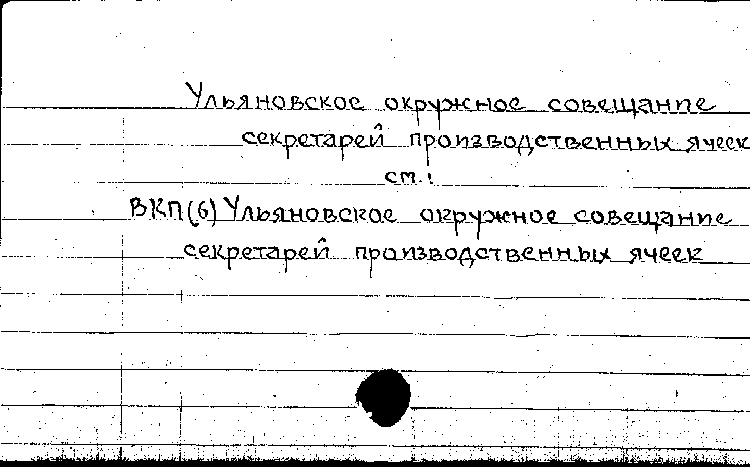 Ульяновское окружное совещание
секретарей производственных ячеек
см.:
ВКП(б) Ульяновское окружное совещание
секретарей производственных ячеек